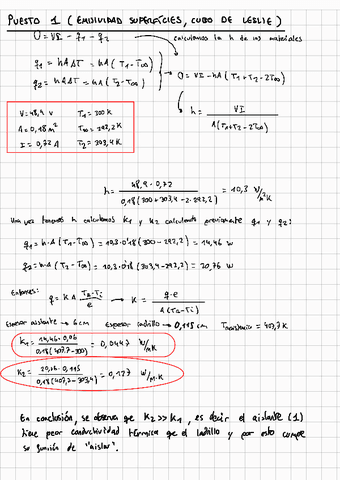 PUESTO 1 ( EMISIVIDAD SUPERFICIES, CUBO DE LESLIE )
0 = VI - q1 - q2 → calculamos la h de los materiales
q1 = hAΔT = hA ( T1 - T∞ )
q2 = hAΔT = hA ( T2 - T∞ )
0 = VI - hA ( T1 + T2 - 2T∞ )
h = VI / A(T1+T2 - 2T∞)
V = 48,9 V T1 = 300 K
A = 0,18 m² T∞ = 292,2 K
I = 0,72 A T2 = 303,4 K
h = 48,9 · 0,72 / 0,18 (300 + 303,4 - 2 · 292,2) = 10,3 W/m²K
Una vez tenemos h calculamos K1 y K2 calculando previamente q1 y q2:
q1 = h·A ( T1 - T∞ ) = 10,3 · 0,18 ( 300 - 292,2 ) = 14,46 W
q2 = h·A ( T2 - T∞ ) = 10,3 · 0,18 ( 303,4 - 292,2 ) = 20,76 W
Entonces:
q = K A Ta - Ti / e → K = q·e / A (Ta - Ti)
Espesor aislante → 6 cm Espesor ladrillo → 0,115 cm = 407,7 K
K1 = 14,46 · 0,06 / 0,18 (407,7 - 300) = 0,0447 W/mK
K2 = 20,76 · 0,115 / 0,18 (407,7 - 303,4) = 0,127 W/m·K
En conclusión, se observa que K2 >> K1, es decir el aislante (1)
tiene peor conductividad térmica que el ladillo y por esto cumple
su función de "aislar".